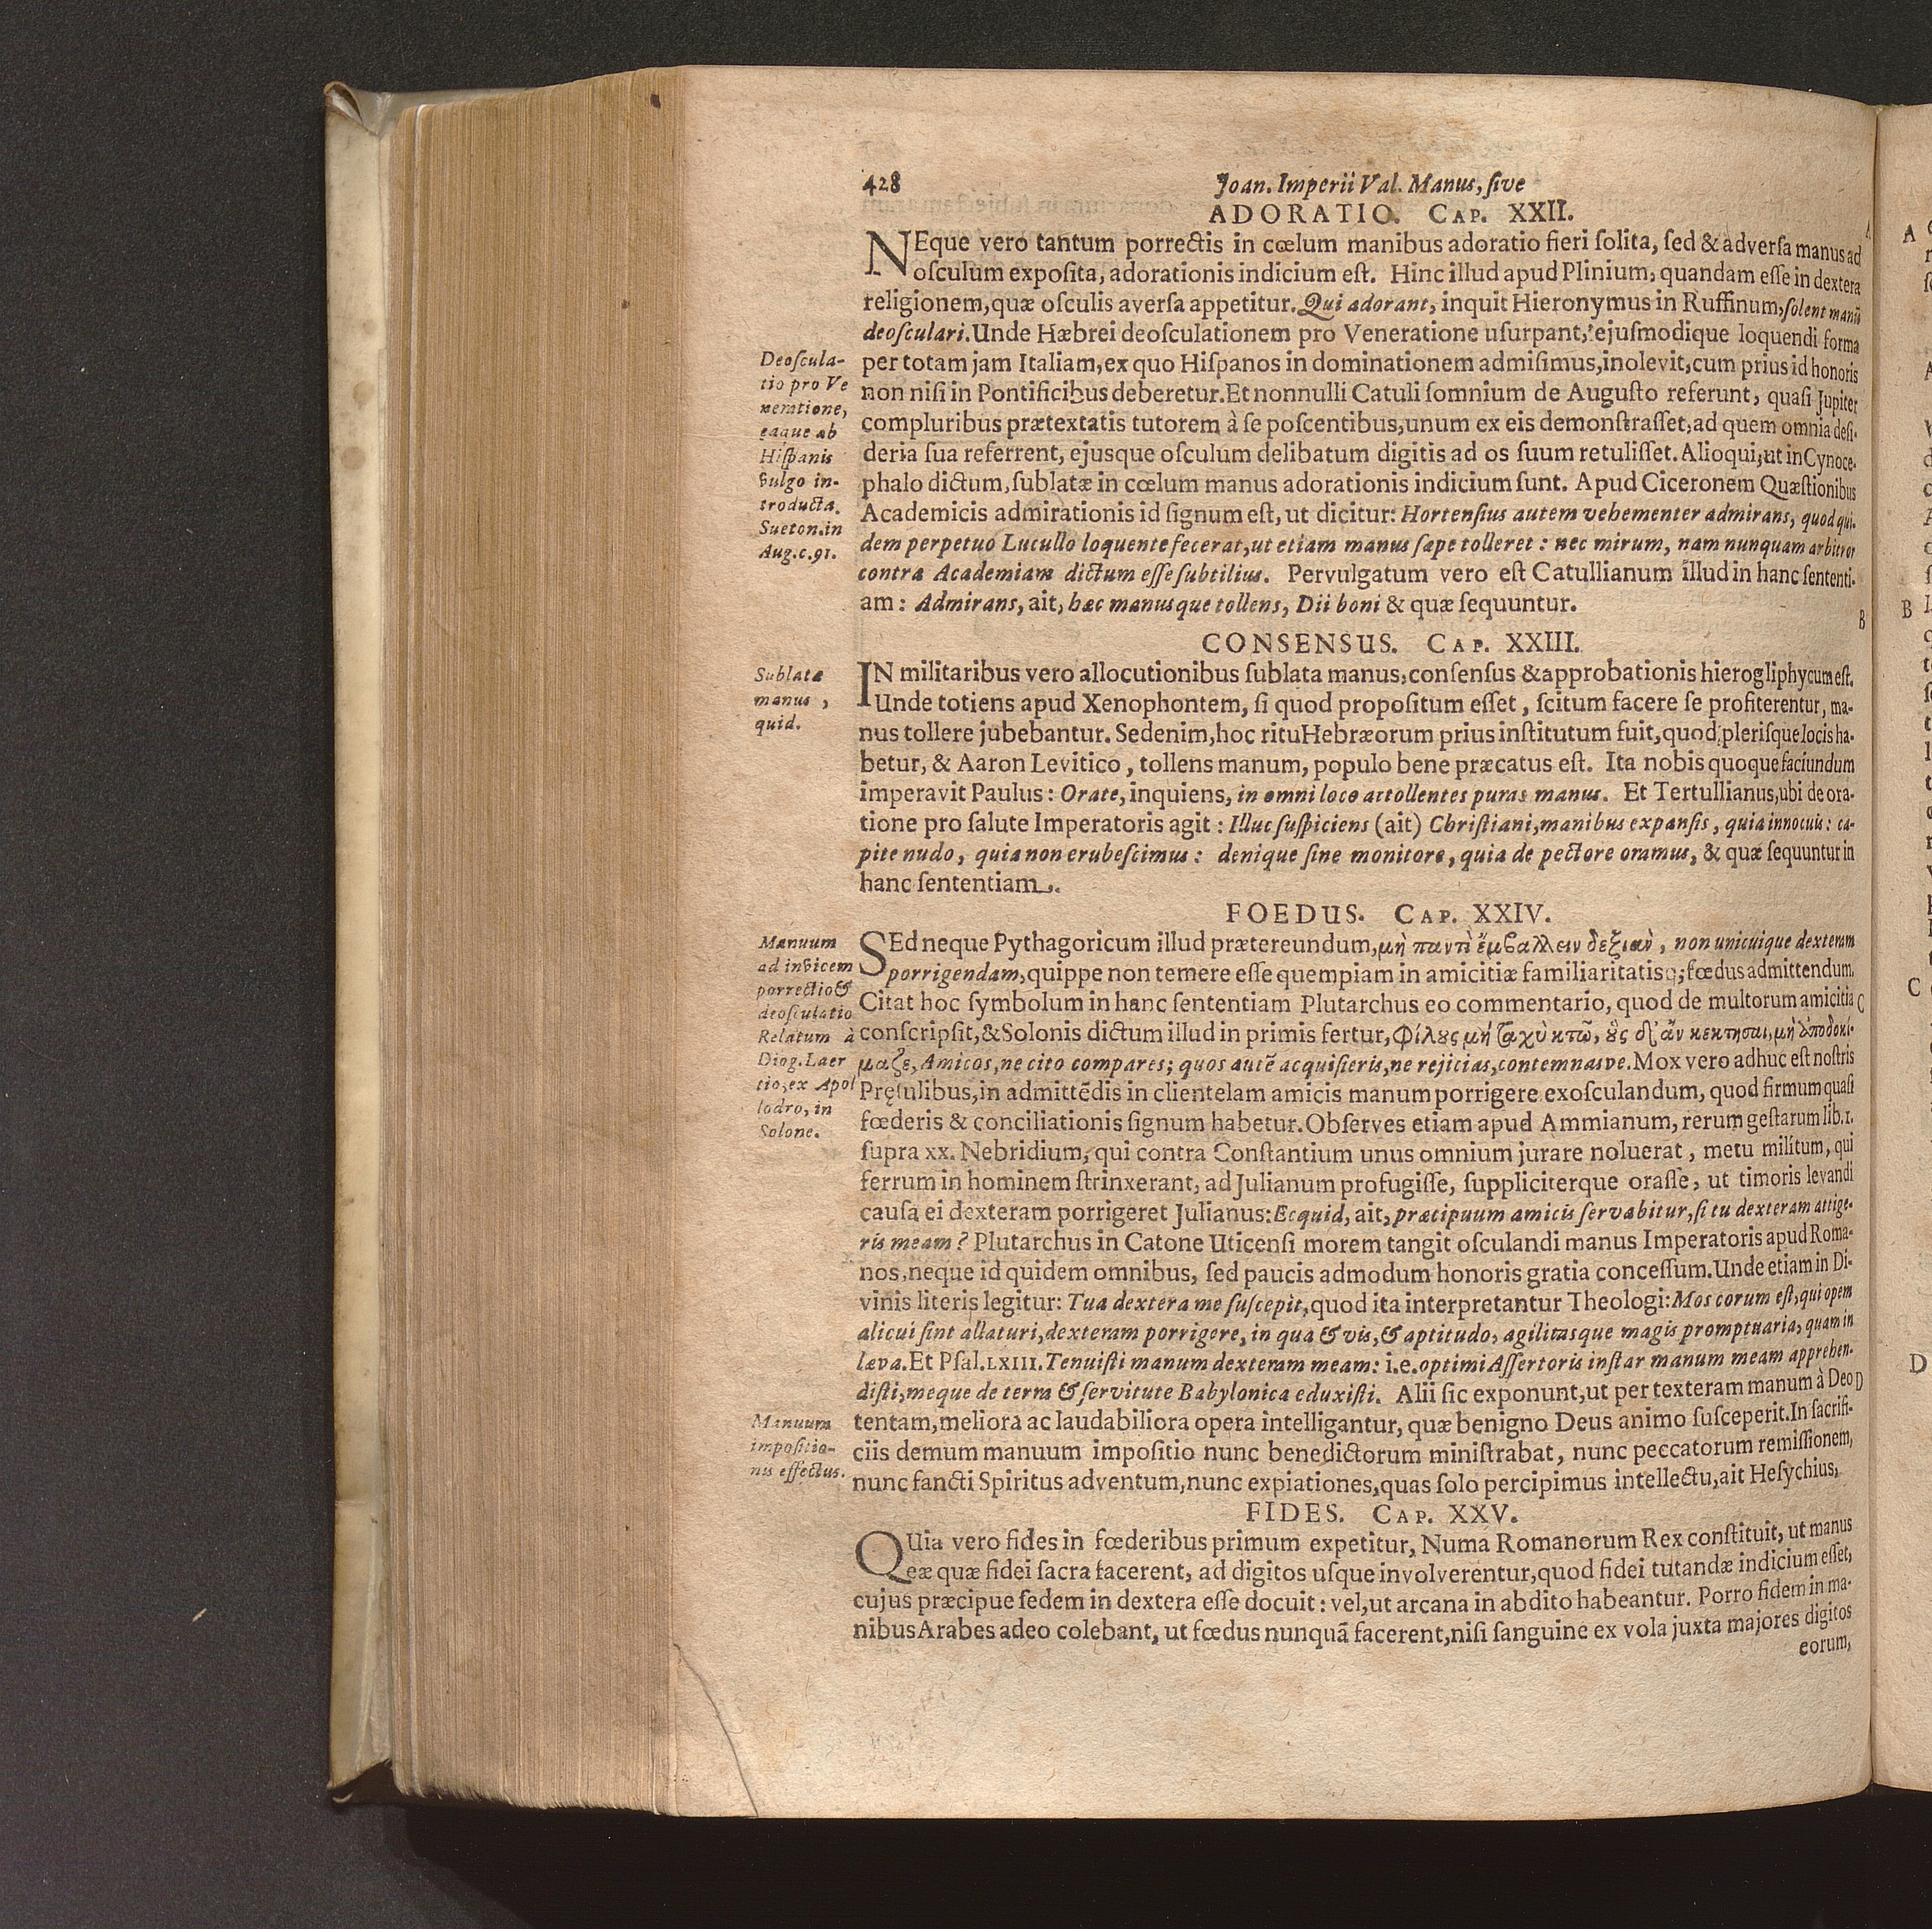 428
Joan. Imperii Val. Manus, ſive
ADORATIO. CAP. XXII.
NEque vero tantum porrectis in cœlum manibus adoratio fieri ſolita, ſed & adverſa manus ad
oſculum expoſita, adorationis indicium eſt. Hinc illud apud Plinium, quandam eſſe in dextera
religionem, quæ oſculis averſa appetitur. Qui adorant, inquit Hieronymus in Ruffinum, ſolent manū
deoſculari. Unde Hæbrei deoſculationem pro Veneratione uſurpant, ejuſmodique loquendi forma
per totam jam Italiam, ex quo Hiſpanos in dominationem admiſimus, inolevit, cum prius id honoris
non niſi in Pontificibus deberetur. Et nonnulli Catuli ſomnium de Auguſto referunt, quaſi Jupiter
compluribus prætextatis tutorem à ſe poſcentibus, unum ex eis demonſtraſſet, ad quem omnia deſi-
deria ſua referrent, ejusque oſculum delibatum digitis ad os ſuum retuliſſet. Alioqui, ut in Cynoce-
phalo dictum, ſublatæ in cœlum manus adorationis indicium ſunt. Apud Ciceronem Quæſtionibus
Academicis admirationis id ſignum eſt, ut dicitur: Hortenſius autem vehementer admirans, quod qui-
dem perpetuo Lucullo loquente fecerat, ut etiam manus ſæpe tolleret: nec mirum, nam nunquam arbitror
contra Academiam dictum eſſe ſubtilius. Pervulgatum vero eſt Catullianum illud in hanc ſententi-
am: Admirans, ait, hæc manusque tollens, Dii boni & quæ ſequuntur.
Deoſcula-
tio pro Ve
neratione,
eaque ab
Hiſpanis
vulgo in-
troducta.
Sueton. in
Aug. c. 91.
A
B
CONSENSUS. CAP. XXIII.
IN militaribus vero allocutionibus ſublata manus, conſenſus & approbationis hierogliphycum eſt.
Unde totiens apud Xenophontem, ſi quod propoſitum eſſet, ſcitum facere ſe profiterentur, ma-
nus tollere jubebantur. Sedenim, hoc ritu Hebræorum prius inſtitutum fuit, quod pleriſque locis ha-
betur, & Aaron Levitico, tollens manum, populo bene præcatus eſt. Ita nobis quoque faciundum
imperavit Paulus: Orate, inquiens, in omni loco attollentes puras manus. Et Tertullianus, ubi de ora-
tione pro ſalute Imperatoris agit: Illuc ſuſpiciens (ait) Chriſtiani, manibus expanſis, quia innocuis: ca-
pite nudo, quia non erubeſcimus: denique ſine monitore, quia de pectore oramus, & quæ ſequuntur in
hanc ſententiam.
Sublatæ
manus,
quid.
FOEDUS. CAP. XXIV.
SEd neque Pythagoricum illud prætereundum, μὴ παντὶ ἔμβαλλειν δεξιαν, non unicuique dexteram
porrigendam, quippe non temere eſſe quempiam in amicitiæ familiaritatisq; fœdus admittendum.
Citat hoc ſymbolum in hanc ſententiam Plutarchus eo commentario, quod de multorum amicitia
conſcripſit, & Solonis dictum illud in primis fertur, φίλȣς μή ταχὺ κτῶ, ȣ̓̀ς δ' ἄν κεκτησαι, μὴ ἀποδοκί-
μαζε, Amicos, ne cito compares; quos autē acquiſieris, ne rejicias, contemnasve. Mox vero adhuc eſt noſtris
Pręſulibus, in admittēdis in clientelam amicis manum porrigere exoſculandum, quod firmum quaſi
fœderis & conciliationis ſignum habetur. Obſerves etiam apud Ammianum, rerum geſtarum lib. 1.
ſupra xx. Nebridium, qui contra Conſtantium unus omnium jurare noluerat, metu militum, qui
ferrum in hominem ſtrinxerant, ad Julianum profugiſſe, ſuppliciterque oraſſe, ut timoris levandi
cauſa ei dexteram porrigeret Julianus: Ecquid, ait, præcipuum amicis ſervabitur, ſi tu dexteram attige-
ris meam? Plutarchus in Catone Uticenſi morem tangit oſculandi manus Imperatoris apud Roma-
nos, neque id quidem omnibus, ſed paucis admodum honoris gratia conceſſum. Unde etiam in Di-
vinis literis legitur: Tua dextera me ſuſcepit, quod ita interpretantur Theologi: Mos eorum eſt, qui opem
alicui ſint allaturi, dexteram porrigere, in qua & vis, & aptitudo, agilitasque magis promptuaria, quam in
læva. Et Pſal. LXIII. Tenuiſti manum dexteram meam: i.e. optimi Aſſertoris inſtar manum meam apprehen-
diſti, meque de terra & ſervitute Babylonica eduxiſti. Alii ſic exponunt, ut per texteram manum à Deo
tentam, meliora ac laudabiliora opera intelligantur, quæ benigno Deus animo ſuſceperit. In ſacrifi-
ciis demum manuum impoſitio nunc benedictorum miniſtrabat, nunc peccatorum remiſſionem,
nunc ſancti Spiritus adventum, nunc expiationes, quas ſolo percipimus intellectu, ait Heſychius,
Manuum
ad invicem
porrectio &
deoſculatio
Relatum à
Diog. Laer
tio, ex Apol
lodro, in
Solone.
Manuum
impoſitio-
nis effectus.
C
D
FIDES. CAP. XXV.
QUia vero fides in fœderibus primum expetitur, Numa Romanorum Rex conſtituit, ut manus
eæ quæ fidei ſacra facerent, ad digitos uſque involverentur, quod fidei tutandæ indicium eſſet,
cujus præcipue ſedem in dextera eſſe docuit: vel, ut arcana in abdito habeantur. Porro fidem in ma-
nibus Arabes adeo colebant, ut fœdus nunquā facerent, niſi ſanguine ex vola juxta majores digitos
eorum,
A
B
C
D